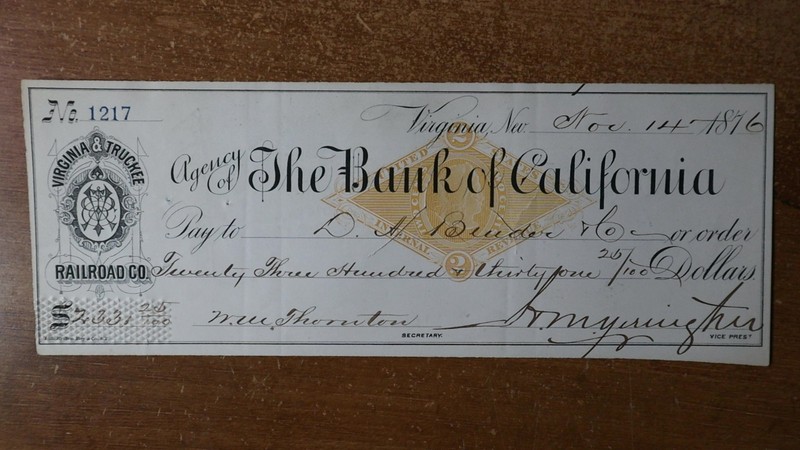 No. 1217
Virginia, Nev. Nov. 14 1876
VIRGINIA & TRUCKEE
RAILROAD CO.
Agency of The Bank of California
Pay to D. A. Bender & Co or order
Twenty Three Hundred & thirty one 25/100 Dollars
$2331 25/100
Wm. Thornton
SECRETARY.
H. M. Yerington
VICE PREST
UNITED STATES
INTERNAL REVENUE
2
2